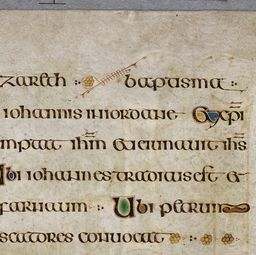 zareth : baptisma :
iohannis in iordane Et xpi
mput ihm Et ieiunauit ihs
Ubi iohannes traditus est et
farnaum : Ubi plerum
scatores conuocat